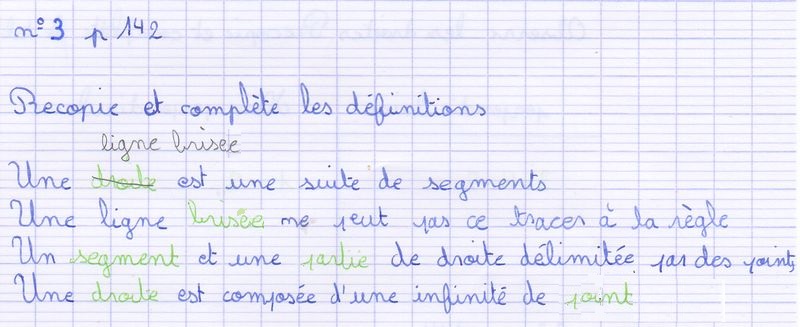 n° 3 p 142
Recopie et complète les définitions
ligne brisée
Une droite est une suite de segments
Une ligne brisée ne peut pas ce traces à la règle
Un segment et une partie de droite délimitée par des points
Une droite est composée d'une infinité de point